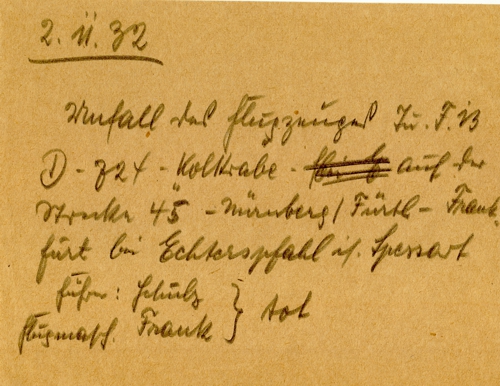 2. II. 32
Unfall des Flugzeuges Ju. F. 13
D - 724 - Kolkrabe - auf der
Strecke 45 - Nürnberg / Fürth - Frank-
furt bei Echterspfahl i/. Spessart
Führer: Schulz } tot
Flugmasch. Frank